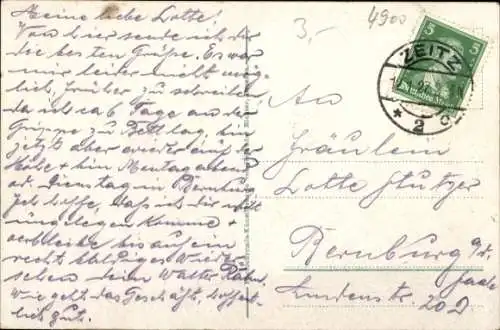 Meine liebe Lotte!
Von hier sende ich dir
die besten Grüße. Es war
mir leider nicht mög-
lich, früher zu schreiben
da ich ca 6 Tage an der
Grippe zu Bett lag, bin
jetzt aber wieder auf der
Höhe + bin Montag abend
od. Dienstag in Bernburg
Ich hoffe, dass ich dir nicht
ungelegen komme +
verbleibe bis auf ein
recht baldiges Wieder-
sehen dein Walter
Wie geht das Geschäft, hoffent-
lich gut.
3,-
4900
5
5
ZEITZ
* 2 c
An
Fräulein
Lotte Stutzer
Bernburg a/d.
Saale
Lindenstr. 20